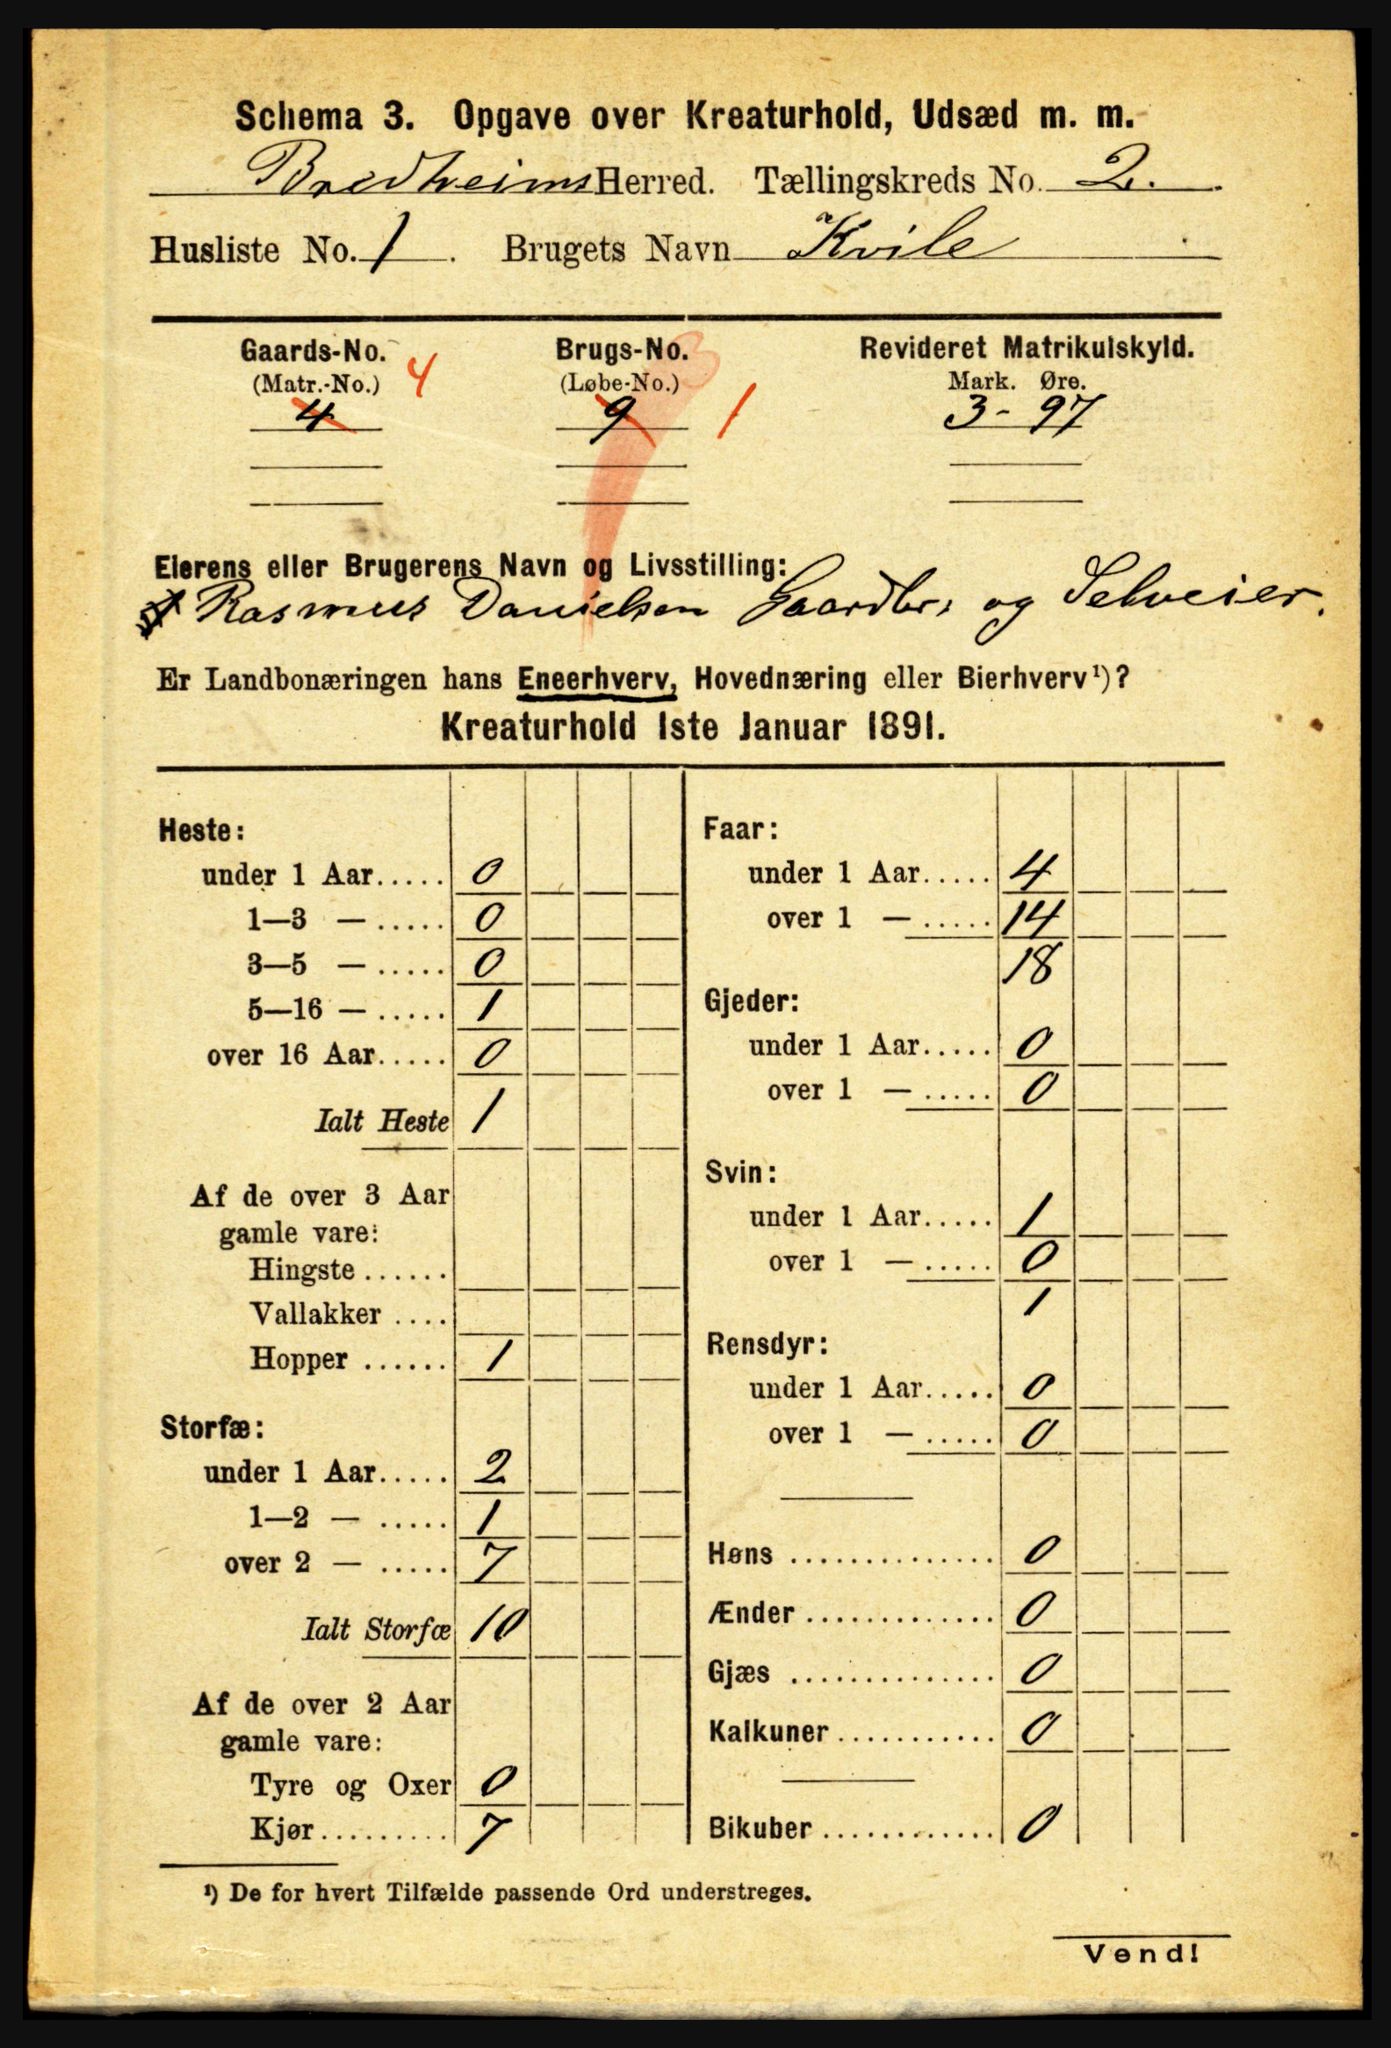 Schema 3. Opgave over Kreaturhold, Udsæd m. m.
Bredheims Herred. Tællingskreds No. 2.
Husliste No. 1. Brugets Navn Kvile
Gaards-No. Brugs-No. Revideret Matrikulskyld.
(Matr.-No.) 4 (Løbe-No.) Mark. Øre.
4 9 1 3 - 97
Eierens eller Brugerens Navn og Livsstilling:
Rasmus Danielsen Gaardbr. og Selveier.
Er Landbonæringen hans Eneerhverv, Hovednæring eller Bierhverv¹)?
Kreaturhold 1ste Januar 1891.
Heste:
under 1 Aar..... 0
1—3 — ..... 0
3—5 — ..... 0
5—16 — ..... 1
over 16 Aar..... 0
Ialt Heste 1
Af de over 3 Aar
gamle vare:
Hingste ......
Vallakker ....
Hopper ...... 1
Storfæ:
under 1 Aar..... 2
1—2 — ..... 1
over 2 — ..... 7
Ialt Storfæ 10
Af de over 2 Aar
gamle vare:
Tyre og Oxer 0
Kjør......... 7
Faar:
under 1 Aar..... 4
over 1 — ..... 14
18
Gjeder:
under 1 Aar..... 0
over 1 — ..... 0
Svin:
under 1 Aar..... 1
over 1 — ..... 0
1
Rensdyr:
under 1 Aar..... 0
over 1 — ..... 0
Høns .............. 0
Ænder ............. 0
Gjæs .............. 0
Kalkuner ........... 0
Bikuber ............ 0
¹) De for hvert Tilfælde passende Ord understreges.
Vend!